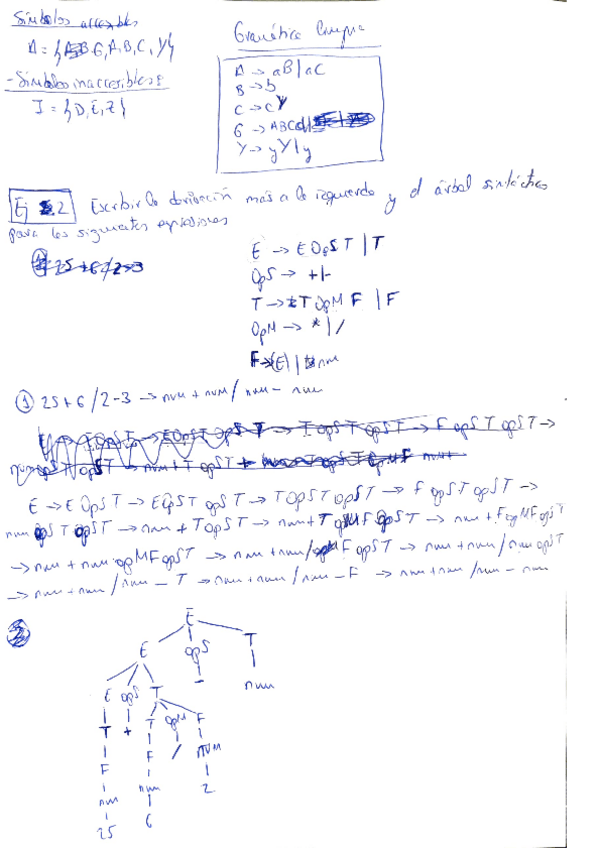 Símbolos accesibles
A = {G, A, B, C, Y}
- Símbolos inaccesibles:
I = {D, E, Z}
Gramática limpia
A → aB | aC
B → b
C → cY
G → ABCd
Y → yY | y
Ej 2 Escribir la derivación más a la izquierda y el árbol sintáctico
para las siguientes expresiones
E → E OpS T | T
OpS → + | -
T → T OpM F | F
OpM → * | /
F → (E) | num
① 25+6/2-3 → num + num / num - num
E → E OpS T → E OpST opST → T OpST opST → F opST opST →
num opST opST → num + T opST → num + T opM F opST → num + F opMF opST
→ num + num opMF opST → num + num / F opST → num + num / num opST
→ num + num / num - T → num + num / num - F → num + num / num - num
②
E
E opS T
E opS T - num
T + T opM F
F F / num
num num 2
25 6